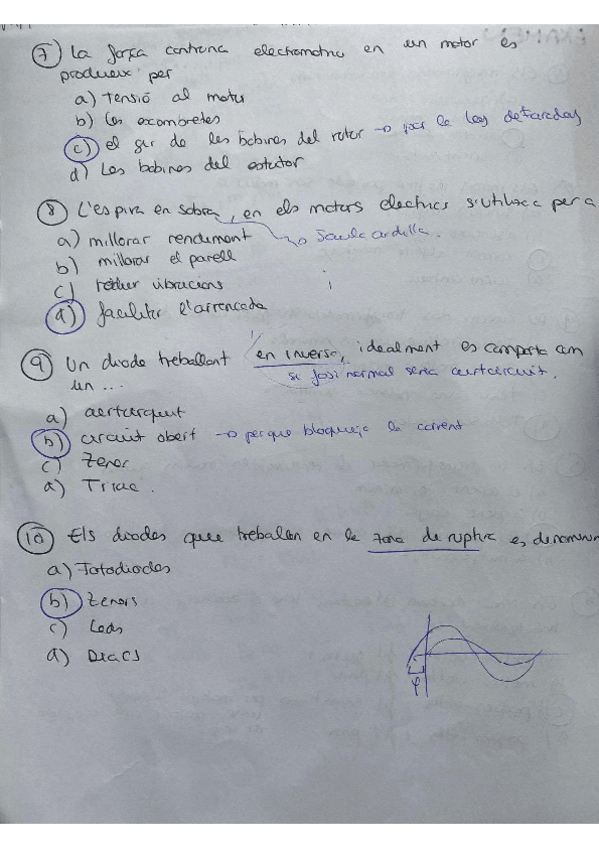 7) La força contraria electromotriu en un motor es
produeix per
a) tensió al motor
b) Les escombretes
c) el gir de les bobines del rotor → per la ley de Faraday
d) Les bobines del estator
8) L'espira en sobra, en els motors electrics s'utilitza per a
a) millorar rendiment → Jaula ardilla.
b) millorar el parell
c) vibracions
d) facilitar l'arrencada
9) Un diode treballant en inversa, idealment es comporta com
un ...
si fos normal seria curtcircuit.
a) curtcircuit
b) circuit obert → perque bloqueja la corrent
c) Zener
d) Triac.
10) Els diodes que treballen en la zona de ruptura es denominen
a) Fotodiodes
b) Zeners
c) Leds
d) Diacs
φ